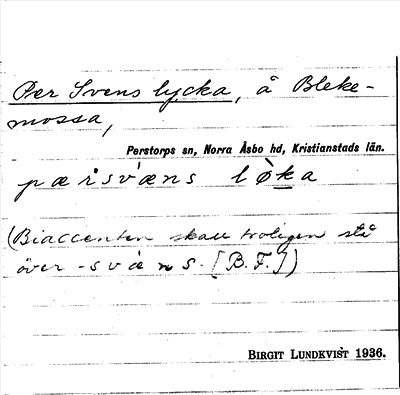 Per Svens lycka, å Bleke-
mossa,
Perstorps sn, Norra Åsbo hd, Kristianstads län.
pærsvæ̀ns løka
(Biaccenten skall troligen stå
över -svæ̀ns- [B.F.])
BIRGIT LUNDKVIST 1936.